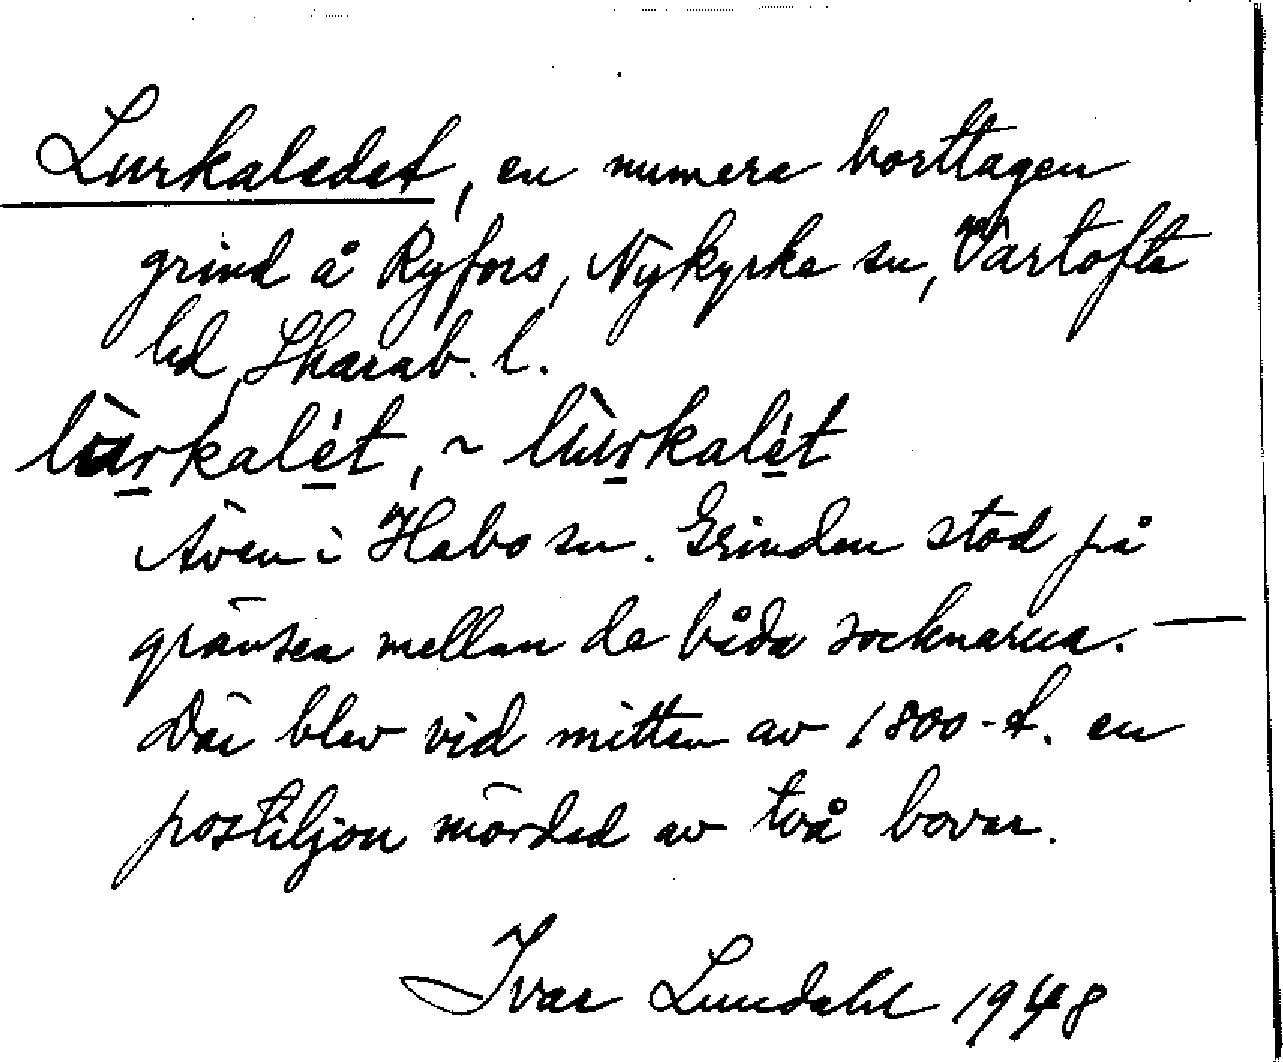 Lurkaledet, en numera borttagen
grind å Ryfors, Nykyrke sn, Vartofta
hd, Skarab. l.
lùrkalét, ~ lùrkalét
Även i Habo sn. Grinden stod på
gränsen mellan de båda socknarna. —
Där blev vid mitten av 1800-t. en
postiljon mördad av två bovar.
Ivar Lundahl 1948